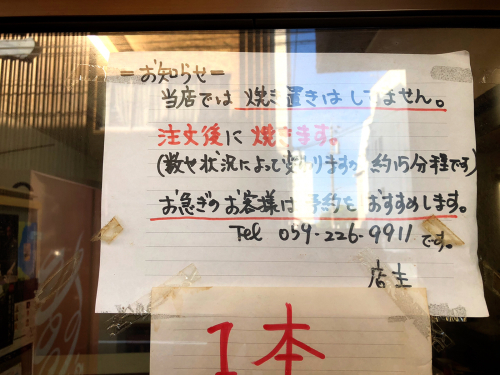 －お知らせ－
当店では 焼き置きはしてません。
注文後に 焼きます。
(数や状況によって変わりますが 約15分程です)
お急ぎのお客様は 予約をおすすめします。
Tel 059-226-9911 です。
店主
1本